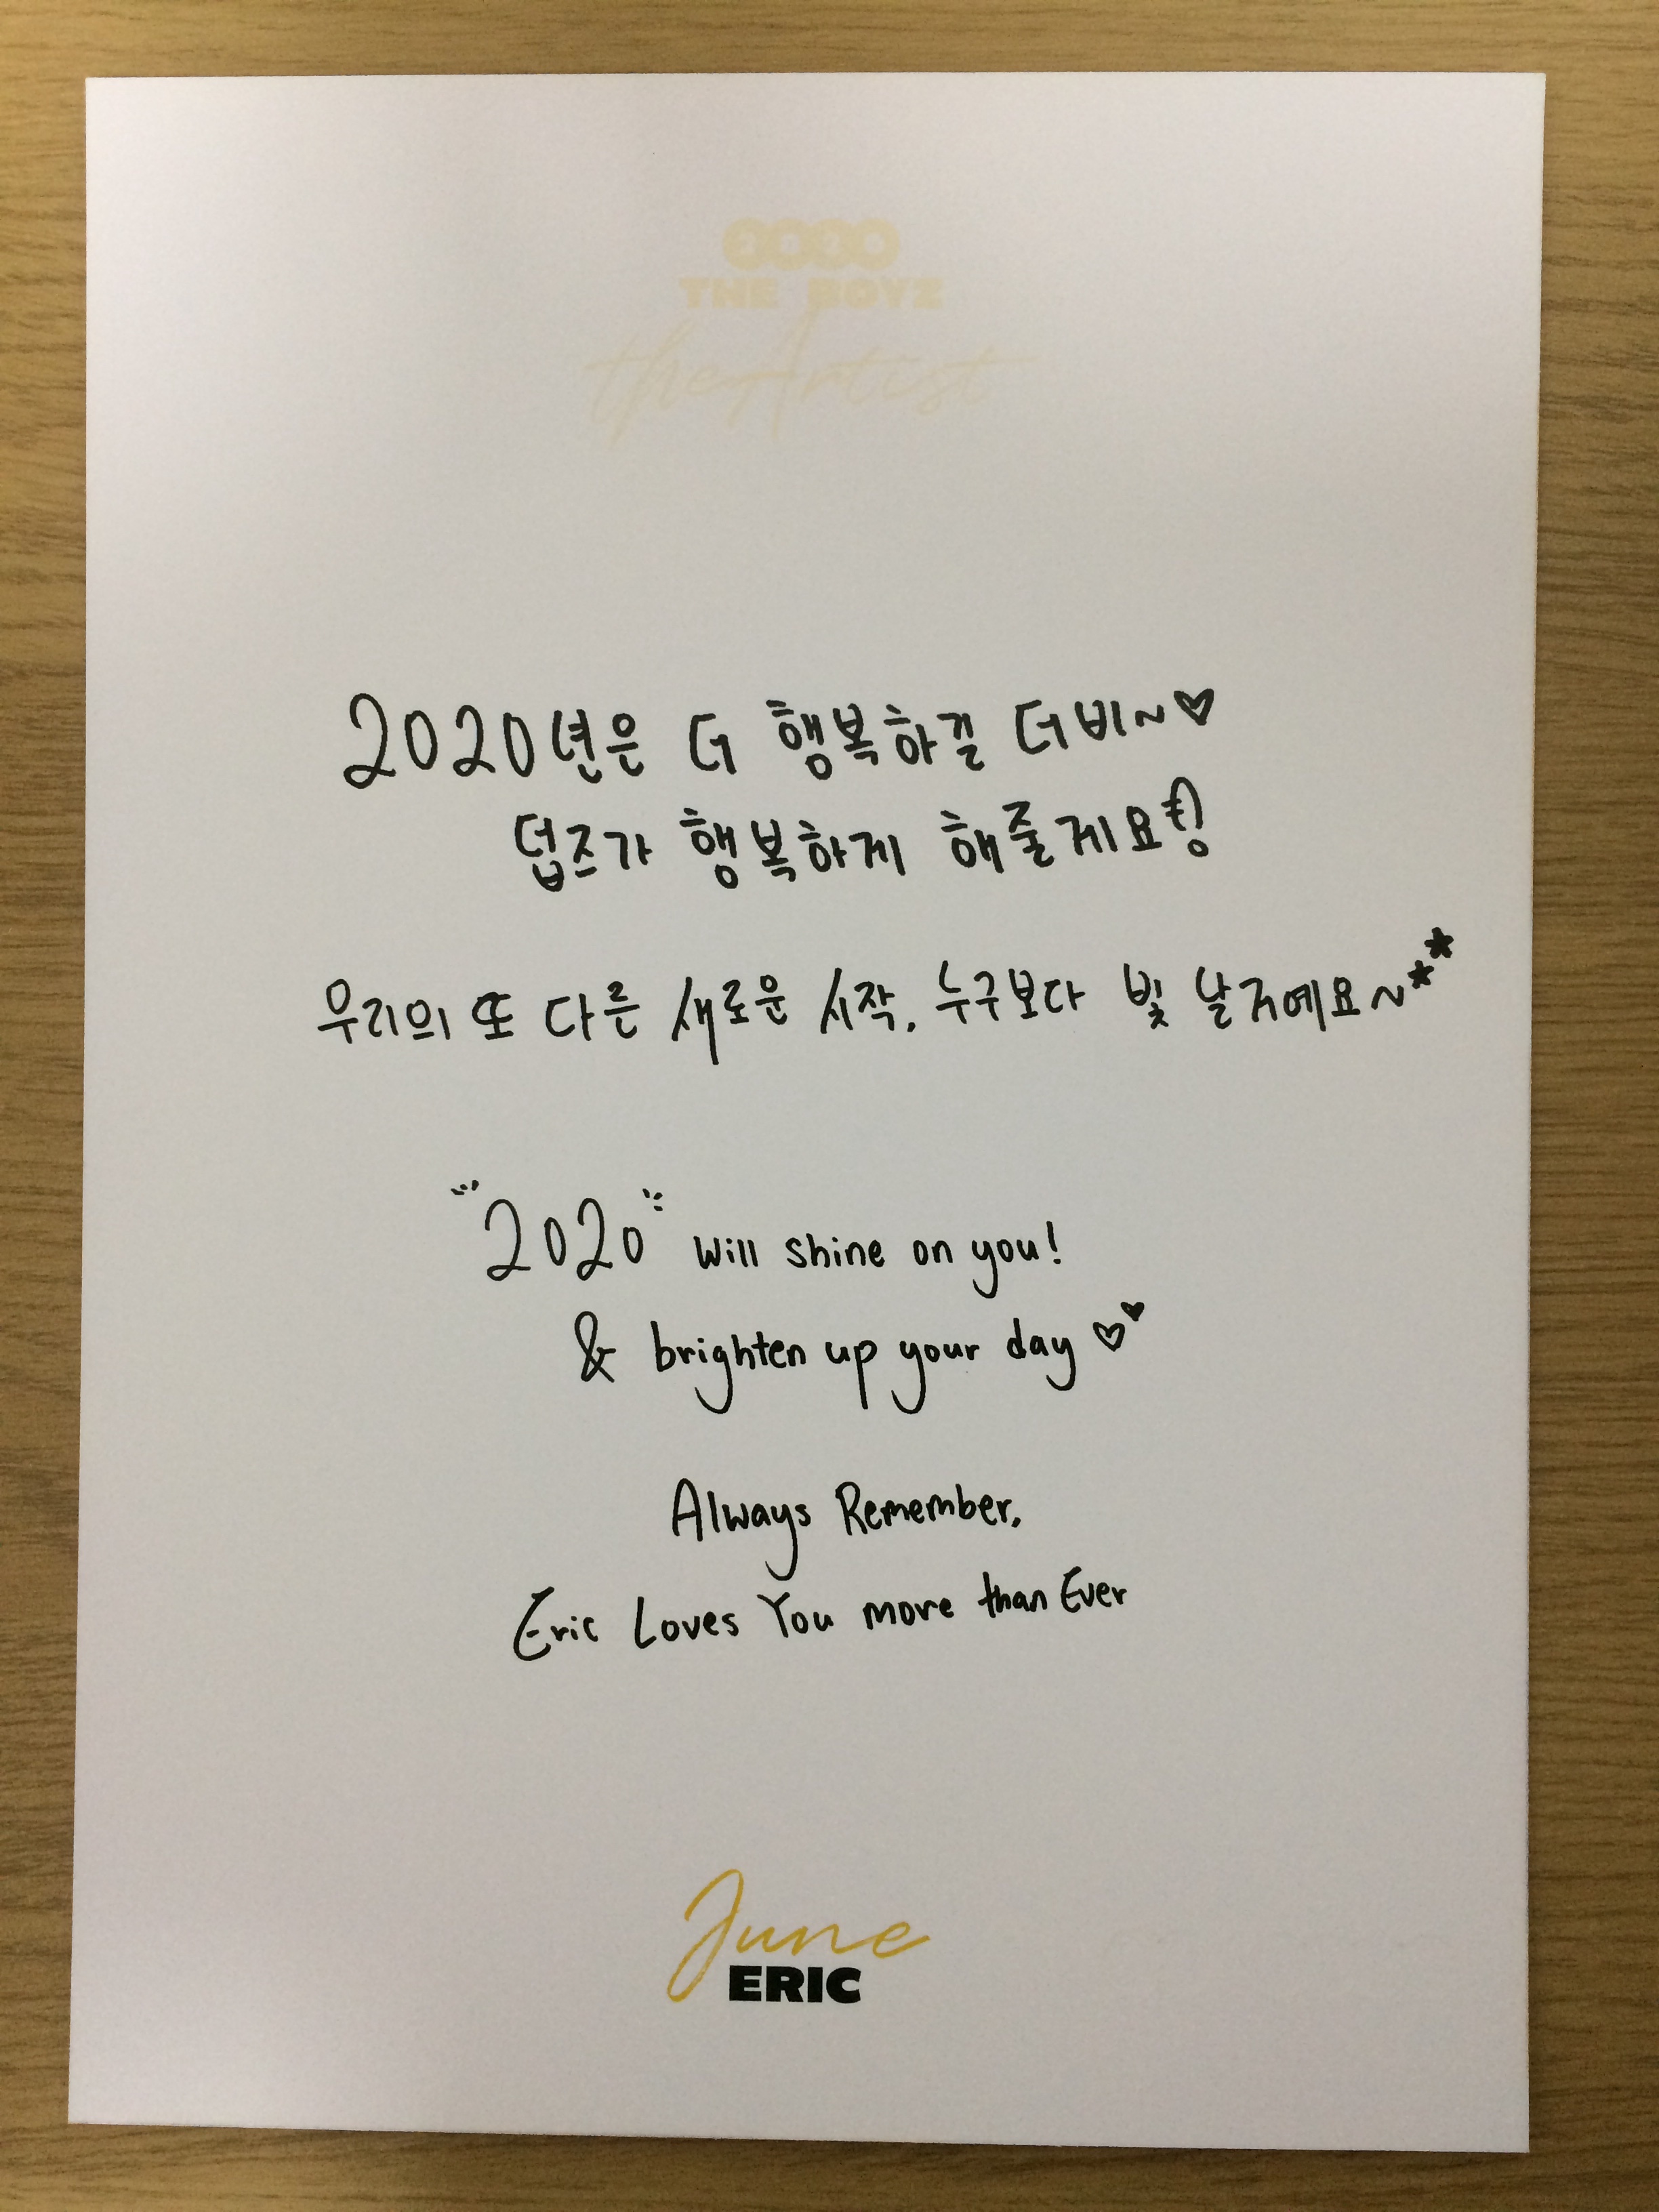 2020
THE BOYZ
the Artist
2020년은 더 행복하길 더비~♡
덥즈가 행복하게 해줄게요!
우리의 또 다른 새로운 시작, 누구보다 빛 날거예요~**
"2020" will shine on you!
& brighten up your day ♡♥
Always Remember,
Eric Loves You more than Ever
June
ERIC